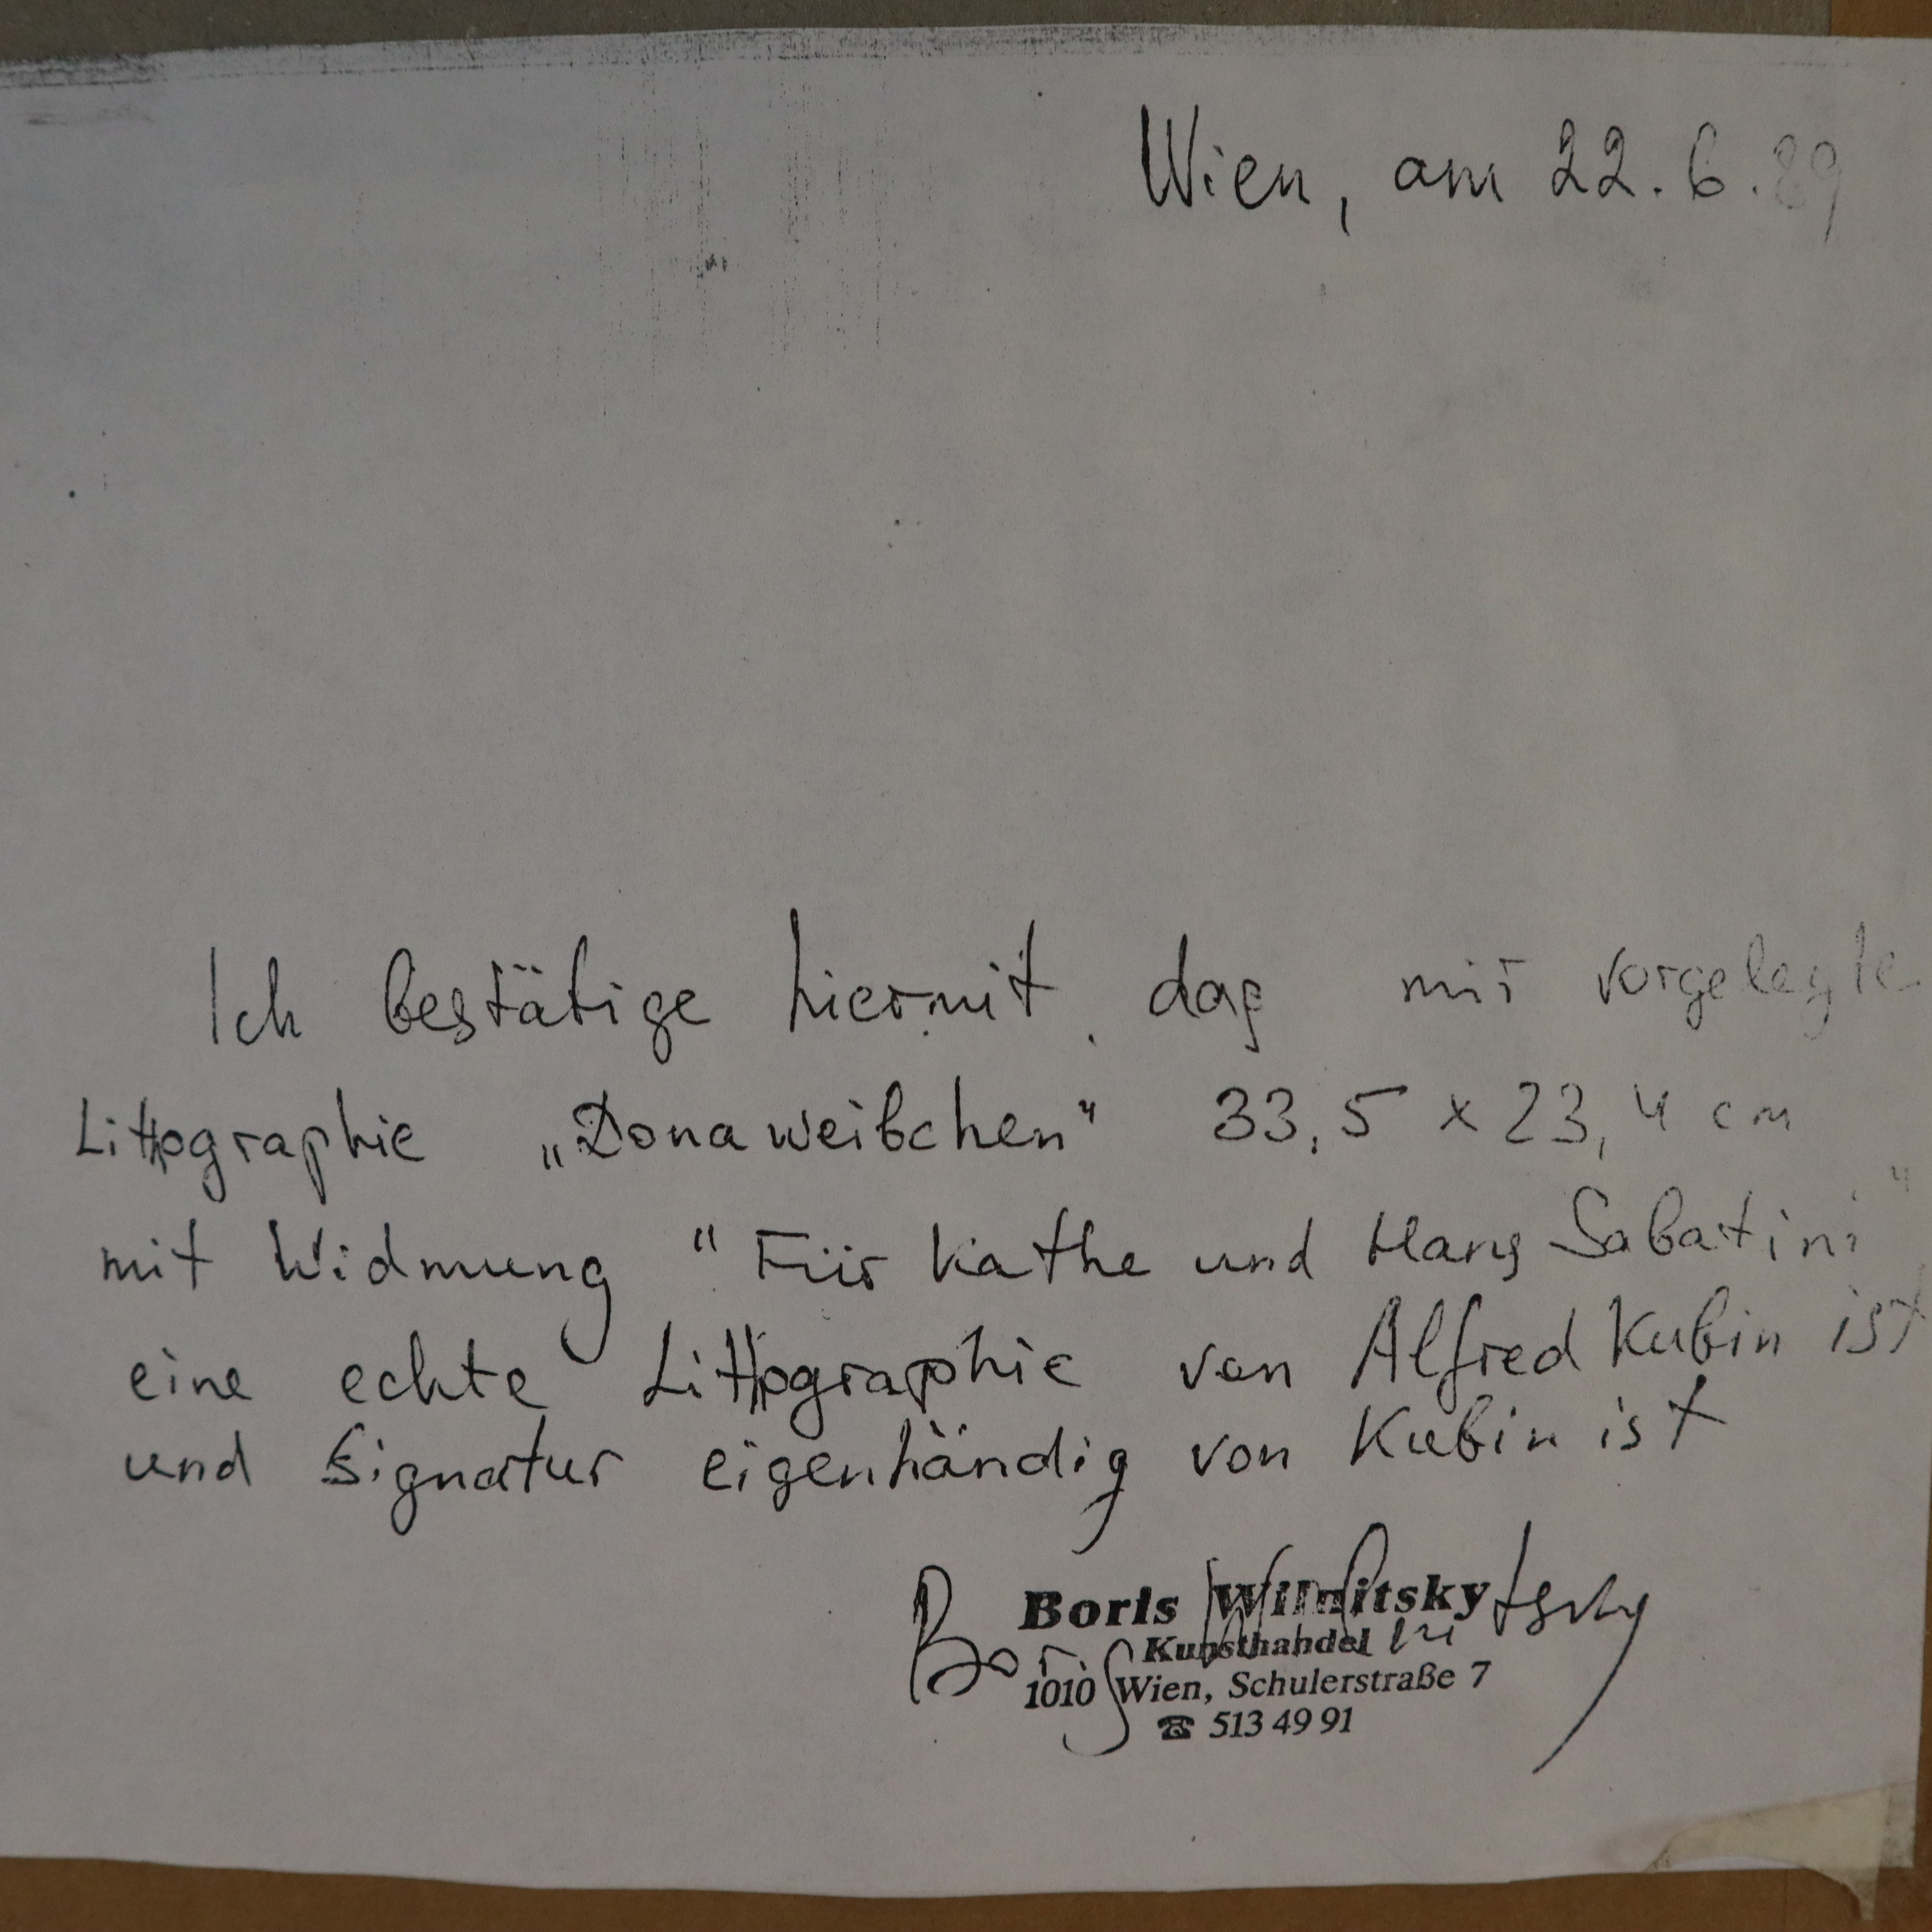 Wien, am 22.6.89
Ich bestätige hiermit, daß mir vorgelegte
Litthographie „Donaweibchen" 33,5 x 23,4 cm
mit Widmung "Für Kathe und Hans Sabatini"
eine echte Litthographie von Alfred Kubin ist
und Signatur eigenhändig von Kubin ist
Boris Wilnitsky
Boris Wilnitsky
Kunsthandel
1010 Wien, Schulerstraße 7
☎ 513 49 91